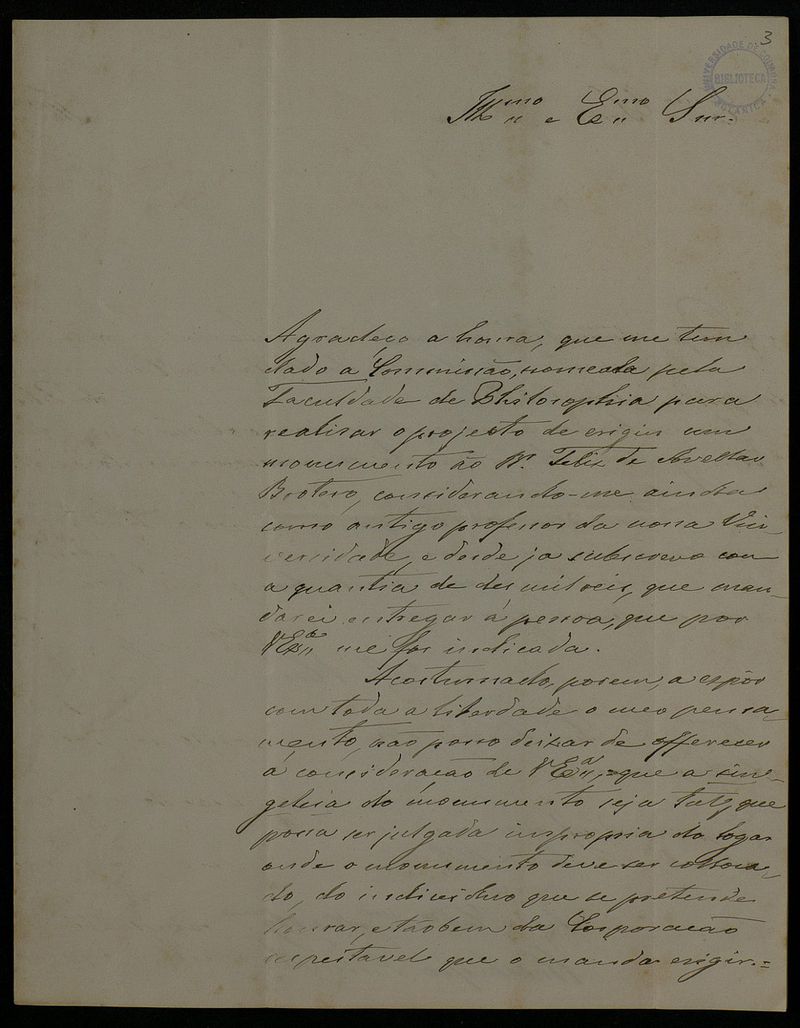 3
UNIVERSIDADE DE COIMBRA
BIBLIOTECA
BOTANICA
Illmo e Exmo Snr.
Agradeço a honra, que me tem
dado a Commissão, nomeada pela
Faculdade de Philosophia para
realisar o projecto de erigir um
monumento ao Dr. Felix de Avellar
Brotero, considerando-me ainda
como antigo professor da nossa Uni-
versidade, e desde ja subscrevo com
a quantia de dez mil reis, que man-
darei entregar á pessoa, que por
VExª me for indicada.
Acostumado, porem, a expôr
com toda a liberdade o meo pensa-
mento, não posso deixar de offerecer
á consideração de VExª, = que a sin-
geleza do monumento seja tal, que
possa ser julgada impropria do logar
onde o monumento deve ser colloca-
do, do individuo que se pretende
honrar, e tãobem da Corporação
respeitavel que o manda erigir. =